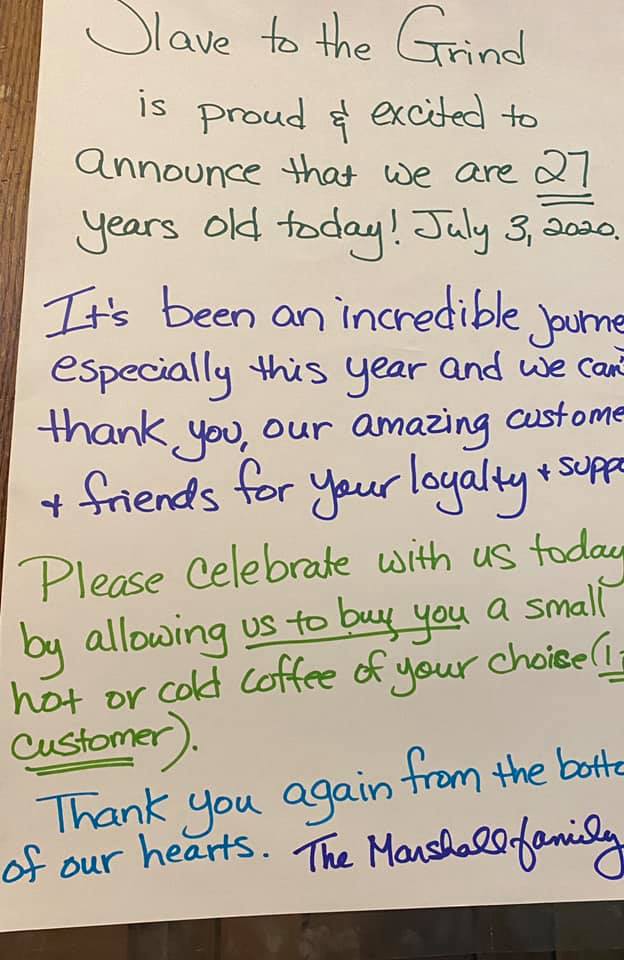 Slave to the Grind
is proud & excited to
announce that we are 27
years old today! July 3, 2020.
It's been an incredible journe
especially this year and we can'
thank you, our amazing custome
+ friends for your loyalty + suppo
Please celebrate with us today
by allowing us to buy you a small
hot or cold coffee of your choise (1
customer).
Thank you again from the botto
of our hearts. The Marshall family